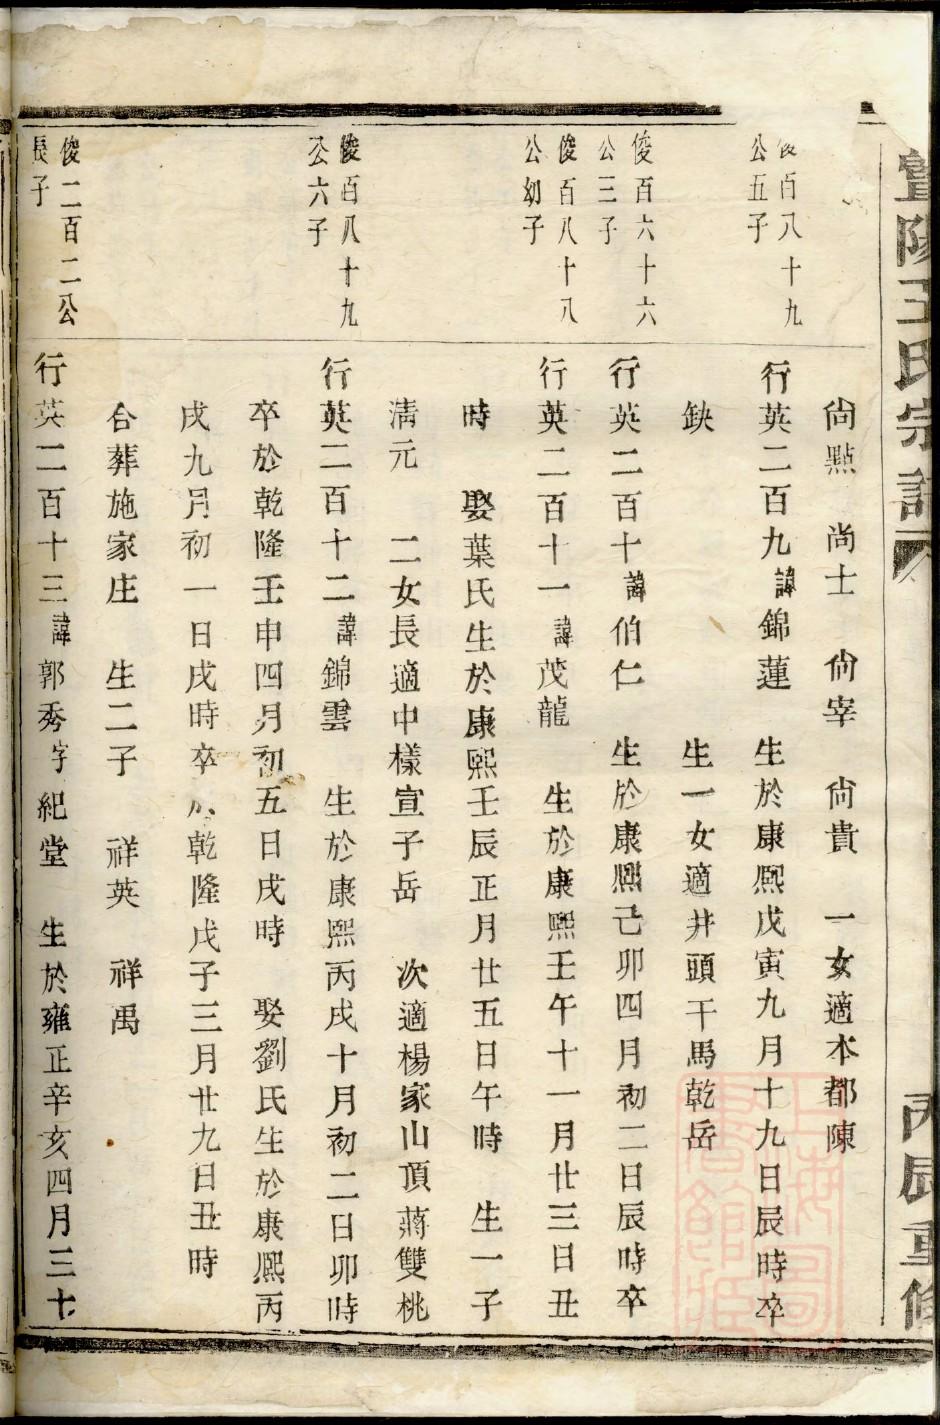 暨陽王氏宗譜
丙辰重修
尙點 尙士 尙宰 尙貴 一女適本都陳
俊百八十九
公五子
行英二百九諱錦蓮 生於康熙戊寅九月十九日辰時卒
缺 生一女適井頭干馬乾岳
俊百六十六
公三子
行英二百十諱伯仁 生於康熙己卯四月初二日辰時卒
俊百八十八
公幼子
行英二百十一諱茂龍 生於康熙壬午十一月廿三日丑
時 娶葉氏生於康熙壬辰正月廿五日午時 生一子
淸元 二女長適中樣宣子岳 次適楊家山頂蔣雙桃
俊百八十九
公六子
行英二百十二諱錦雲 生於康熙丙戌十月初二日卯時
卒於乾隆壬申四月初五日戌時 娶劉氏生於康熙丙
戌九月初一日戌時卒於乾隆戊子三月廿九日丑時
合葬施家庄 生二子 祥英 祥禹
俊二百二公
長子
行英二百十三諱郭秀字紀堂 生於雍正辛亥四月三十
上海圖書館藏